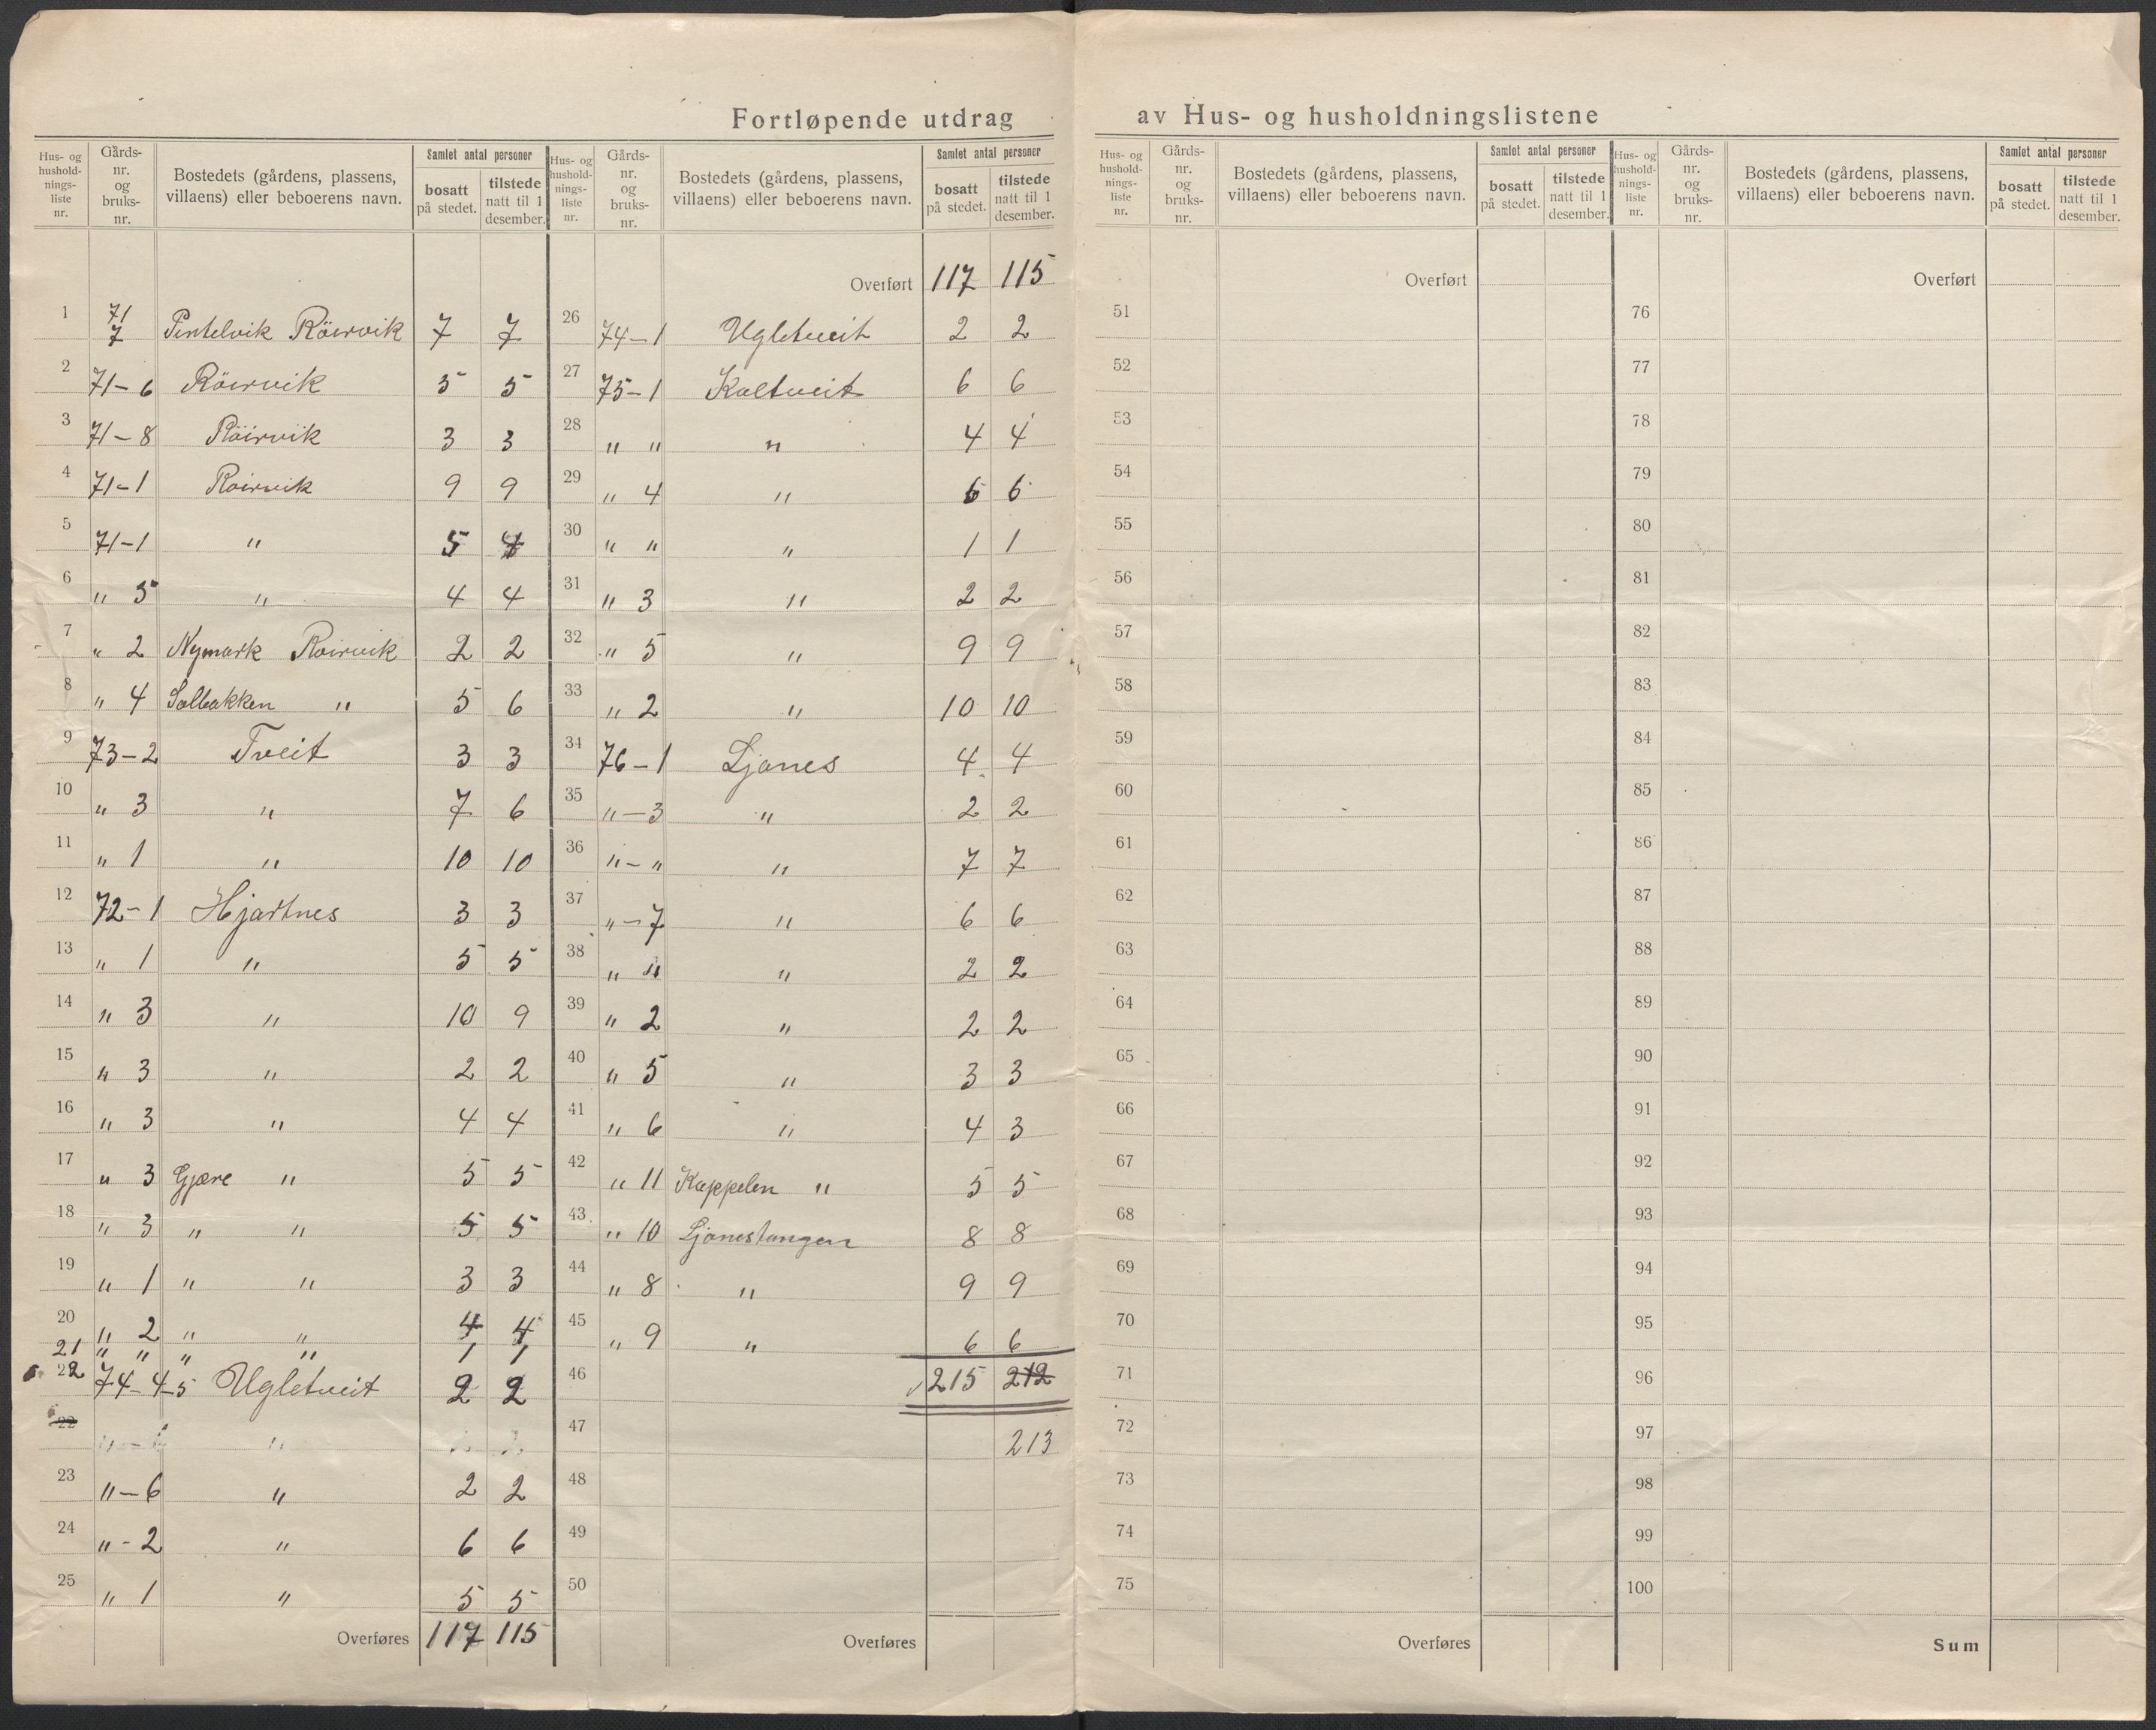 Fortløpende utdrag av Hus- og husholdningslistene
Hus- og husholdnings- liste nr. | Gårds- nr. og bruks- nr. | Bostedets (gårdens, plassens, villaens) eller beboerens navn. | Samlet antal personer | bosatt på stedet. | tilstede natt til 1 desember.
1 71 7 Pintelvik Röirvik 7 7
2 71-6 Röirvik 5 5
3 71-8 Röirvik 3 3
4 71-1 Roirvik 9 9
5 71-1 " 5 4
6 " 5 " 4 4
7 " 2 Nymark Roirvik 2 2
8 " 4 Solbakken " 5 6
9 73-2 Tveit 3 3
10 " 3 " 7 6
11 " 1 " 10 10
12 72-1 Hjartnes 3 3
13 " 1 " 5 5
14 " 3 " 10 9
15 " 3 " 2 2
16 " 3 " 4 4
17 " 3 Gjære " 5 5
18 " 3 " " 5 5
19 " 1 " " 3 3
20 " 2 " " 4 4
21 " " " " 1 1
22 74-4-5 Ugletveit 2 2
22
23 "-6 " 2 2
24 "-2 " 6 6
25 " 1 " 5 5
Overføres 117 115
Hus- og husholdnings- liste nr. | Gårds- nr. og bruks- nr. | Bostedets (gårdens, plassens, villaens) eller beboerens navn. | Samlet antal personer | bosatt på stedet. | tilstede natt til 1 desember.
Overført 117 115
26 74-1 Ugletveit 2 2
27 75-1 Koltveit 6 6
28 " " " 4 4
29 " 4 " 6 6
30 " " " 1 1
31 " 3 " 2 2
32 " 5 " 9 9
33 " 2 " 10 10
34 76-1 Ljones 4 4
35 "-3 " 2 2
36 "-" " 7 7
37 "-7 " 6 6
38 " " " 2 2
39 " 2 " 2 2
40 " 5 " 3 3
41 " 6 " 4 3
42 " 11 Kappelen " 5 5
43 " 10 Ljonestangen 8 8
44 " 8 " 9 9
45 " 9 " 6 6
46 215 212
47 213
48
49
50
Overføres
Hus- og husholdnings- liste nr. | Gårds- nr. og bruks- nr. | Bostedets (gårdens, plassens, villaens) eller beboerens navn. | Samlet antal personer | bosatt på stedet. | tilstede natt til 1 desember.
Overført
51
52
53
54
55
56
57
58
59
60
61
62
63
64
65
66
67
68
69
70
71
72
73
74
75
Overføres
Hus- og husholdnings- liste nr. | Gårds- nr. og bruks- nr. | Bostedets (gårdens, plassens, villaens) eller beboerens navn. | Samlet antal personer | bosatt på stedet. | tilstede natt til 1 desember.
Overført
76
77
78
79
80
81
82
83
84
85
86
87
88
89
90
91
92
93
94
95
96
97
98
99
100
Sum